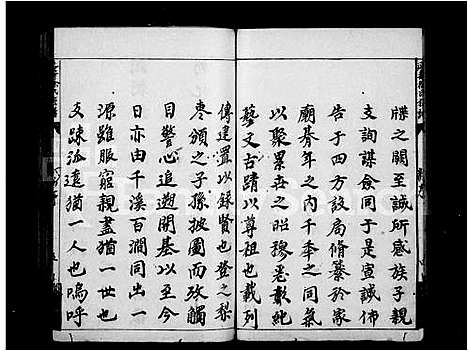 牒之關至誠所感族子親
支詢謀僉同于是宣誠佈
告于四方設局脩纂於家
廟朞年之內千季之同氣
以聚累世之昭穆悉敷純
藝文古蹟以尊祖也載列
傳建置以錄賢也登之梨
棗頒之子孫披圖而攷觸
目警心追遡開基以至今
日亦由千溪百澗同出一
源雖服窮親盡猶一世也
支踈派遠猶一人也嗚呼